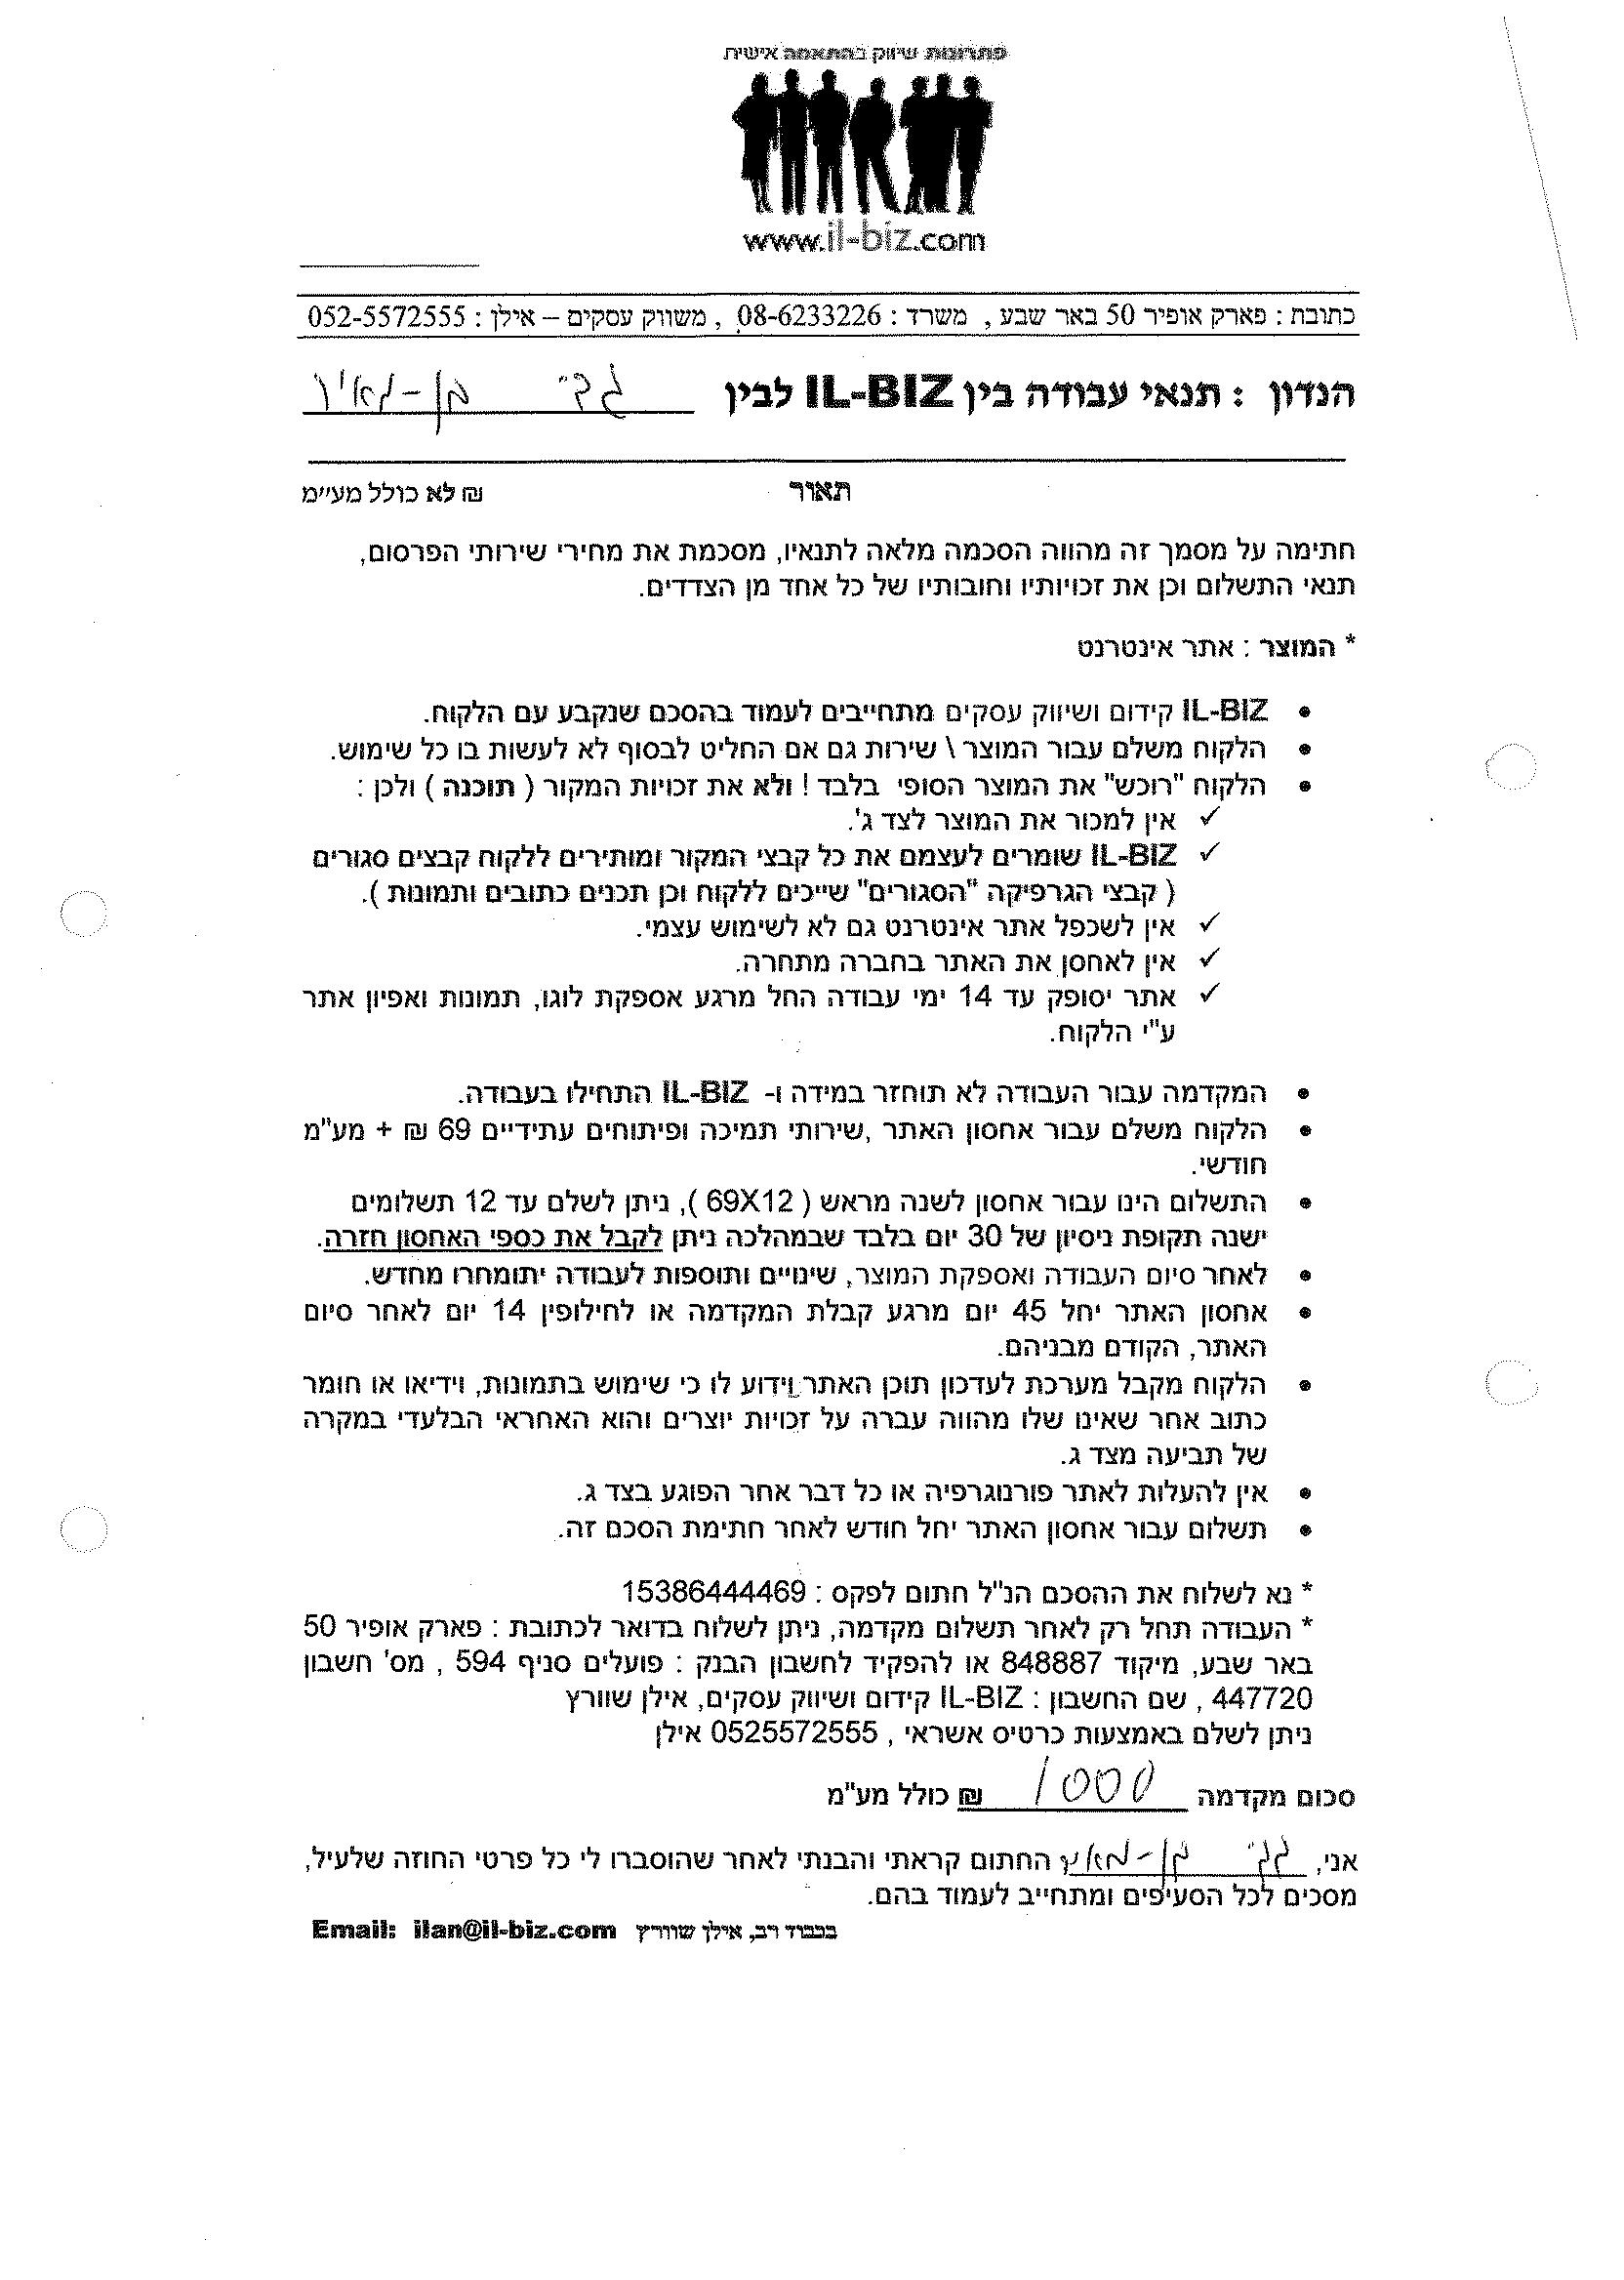 פתרונות שיווק בהתאמה אישית
www.il-biz.com
כתובת : פארק אופיר 50 באר שבע , משרד : 08-6233226 , משווק עסקים – אילן : 052-5572555
הנדון : תנאי עבודה בין IL-BIZ לבין
תאור ₪ לא כולל מע"מ
חתימה על מסמך זה מהווה הסכמה מלאה לתנאיו, מסכמת את מחירי שירותי הפרסום,
תנאי התשלום וכן את זכויותיו וחובותיו של כל אחד מן הצדדים.
* המוצר : אתר אינטרנט
• IL-BIZ קידום ושיווק עסקים מתחייבים לעמוד בהסכם שנקבע עם הלקוח.
• הלקוח משלם עבור המוצר \ שירות גם אם החליט לבסוף לא לעשות בו כל שימוש.
• הלקוח "רוכש" את המוצר הסופי בלבד ! ולא את זכויות המקור ( תוכנה ) ולכן :
✓ אין למכור את המוצר לצד ג'.
✓ IL-BIZ שומרים לעצמם את כל קבצי המקור ומותירים ללקוח קבצים סגורים
( קבצי הגרפיקה "הסגורים" שייכים ללקוח וכן תכנים כתובים ותמונות ).
✓ אין לשכפל אתר אינטרנט גם לא לשימוש עצמי.
✓ אין לאחסן את האתר בחברה מתחרה.
✓ אתר יסופק עד 14 ימי עבודה החל מרגע אספקת לוגו, תמונות ואפיון אתר
ע"י הלקוח.
• המקדמה עבור העבודה לא תוחזר במידה ו- IL-BIZ התחילו בעבודה.
• הלקוח משלם עבור אחסון האתר ,שירותי תמיכה ופיתוחים עתידיים 69 ₪ + מע"מ
חודשי.
• התשלום הינו עבור אחסון לשנה מראש ( 69X12 ), ניתן לשלם עד 12 תשלומים
ישנה תקופת ניסיון של 30 יום בלבד שבמהלכה ניתן לקבל את כספי האחסון חזרה.
• לאחר סיום העבודה ואספקת המוצר, שינויים ותוספות לעבודה יתומחרו מחדש.
• אחסון האתר יחל 45 יום מרגע קבלת המקדמה או לחילופין 14 יום לאחר סיום
האתר, הקודם מבניהם.
• הלקוח מקבל מערכת לעדכון תוכן האתר וידוע לו כי שימוש בתמונות, וידיאו או חומר
כתוב אחר שאינו שלו מהווה עברה על זכויות יוצרים והוא האחראי הבלעדי במקרה
של תביעה מצד ג.
• אין להעלות לאתר פורנוגרפיה או כל דבר אחר הפוגע בצד ג.
• תשלום עבור אחסון האתר יחל חודש לאחר חתימת הסכם זה.
* נא לשלוח את ההסכם הנ"ל חתום לפקס : 15386444469
* העבודה תחל רק לאחר תשלום מקדמה, ניתן לשלוח בדואר לכתובת : פארק אופיר 50
באר שבע, מיקוד 848887 או להפקיד לחשבון הבנק : פועלים סניף 594 , מס' חשבון
447720 , שם החשבון : IL-BIZ קידום ושיווק עסקים, אילן שוורץ
ניתן לשלם באמצעות כרטיס אשראי , 0525572555 אילן
סכום מקדמה 1000 ₪ כולל מע"מ
אני, החתום קראתי והבנתי לאחר שהוסברו לי כל פרטי החוזה שלעיל,
מסכים לכל הסעיפים ומתחייב לעמוד בהם.
בכבוד רב, אילן שוורץ Email: ilan@il-biz.com